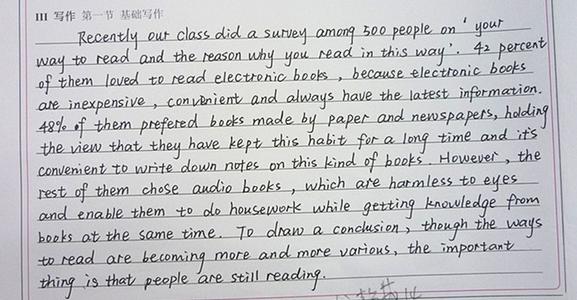 III 写作 第一节 基础写作
Recently our class did a survey among 500 people on ' your
way to read and the reason why you read in this way'. 42 percent
of them loved to read electronic books , because electronic books
are inexpensive , convenient and always have the latest information.
48% of them prefered books made by paper and newspapers, holding
the view that they have kept this habit for a long time and it's
convenient to write down notes on this kind of books. However , the
rest of them chose audio books , which are harmless to eyes
and enable them to do housework while getting knowledge from
books at the same time. To draw a conclusion , though the ways
to read are becoming more and more various, the important
thing is that people are still reading.